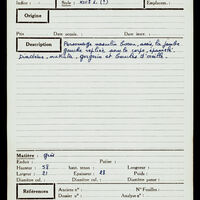 Siècle : XIII S. (?)
Emplacem. :
Origine
Prix
Date acquis. :
Date inscr. :
Description
Personnage masculin barbu, assis, la jambe
gauche repliée sous le corps,
bracelets, gorgerin et boucles d'oreille.
Matière : grès
Enduit :
Patine :
Hauteur : 58
haut. tenon :
Longueur :
Largeur : 21
Epaisseur : 23
Profondeur :
Diamètre col. :
Diamètre panse :
Diamètre :
Références
Ancien n° :
N° Fouilles :
Dossier n° :
Analyse n° :